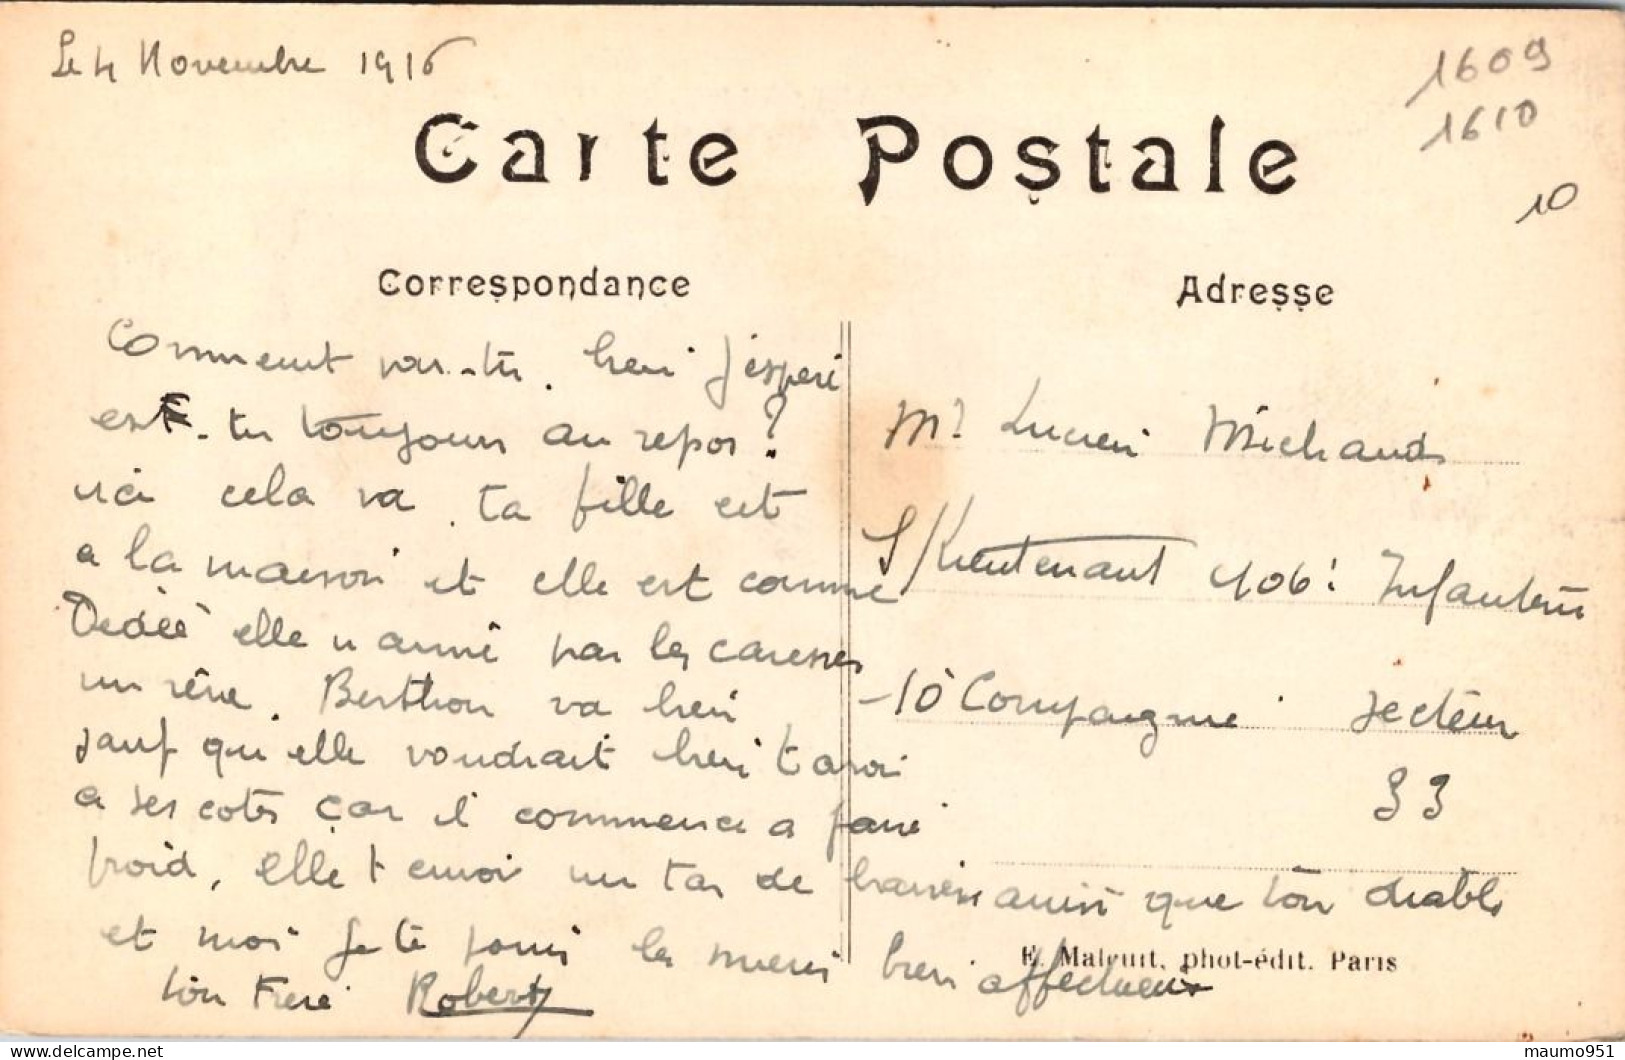 Le 4 Novembre 1916
1609
1610
10
Carte Postale
Correspondance
Adresse
Comment vas-tu. bien j'espere
est-tu toujours au repos?
ici cela va. ta fille est
a la maison et elle est comme
Dédée elle n aime pas les caresses
un rêve. Berthon va bien
sauf qu elle voudrait bien t avoir
a ses cotés car il commence a faire
froid, elle t envoi un tas de baisers ainsi que ton diable
et moi je te joins les miens bien affectueux
ton Frere Robert
Mr Lucien Michaud
S/Lieutenant 406e Infanterie
10e Compagnie Secteur
33
E. Malcuit, phot-édit. Paris
maumo951